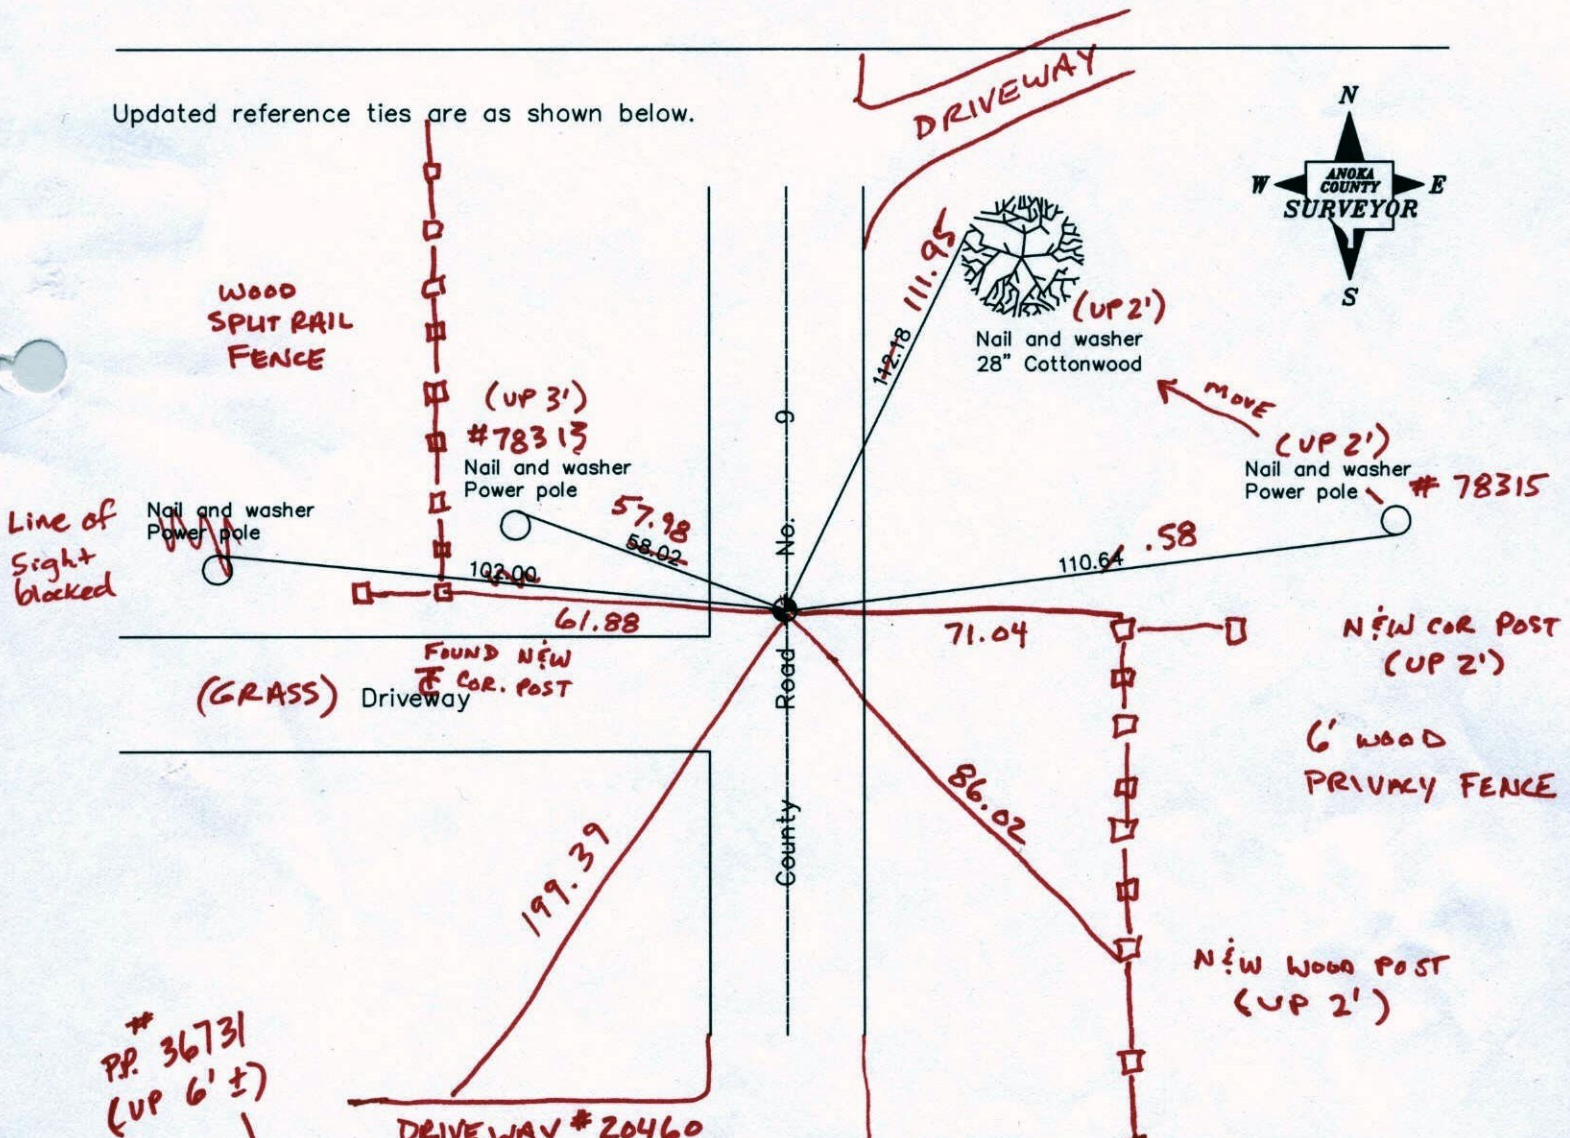 DRIVEWAY
Updated reference ties are as shown below.
N
W
ANOKA
COUNTY
E
SURVEYOR
S
111.95
112.18
WOOD
SPLIT RAIL
FENCE
(UP 2')
Nail and washer
28" Cottonwood
MOVE
(UP 3')
#78313
Nail and washer
Power pole
(UP 2')
Nail and washer
Power pole
# 78315
Line of
Sight
blocked
Nail and washer
Power pole
57.98
58.02
102.00
110.64
.58
61.88
71.04
County Road No. 9
FOUND N&W
COR. POST
(GRASS) Driveway
N&W COR POST
(UP 2')
6' WOOD
PRIVACY FENCE
86.02
199.39
N&W WOOD POST
(UP 2')
P.P. # 36731
(UP 6' ±)
DRIVEWAY # 20460